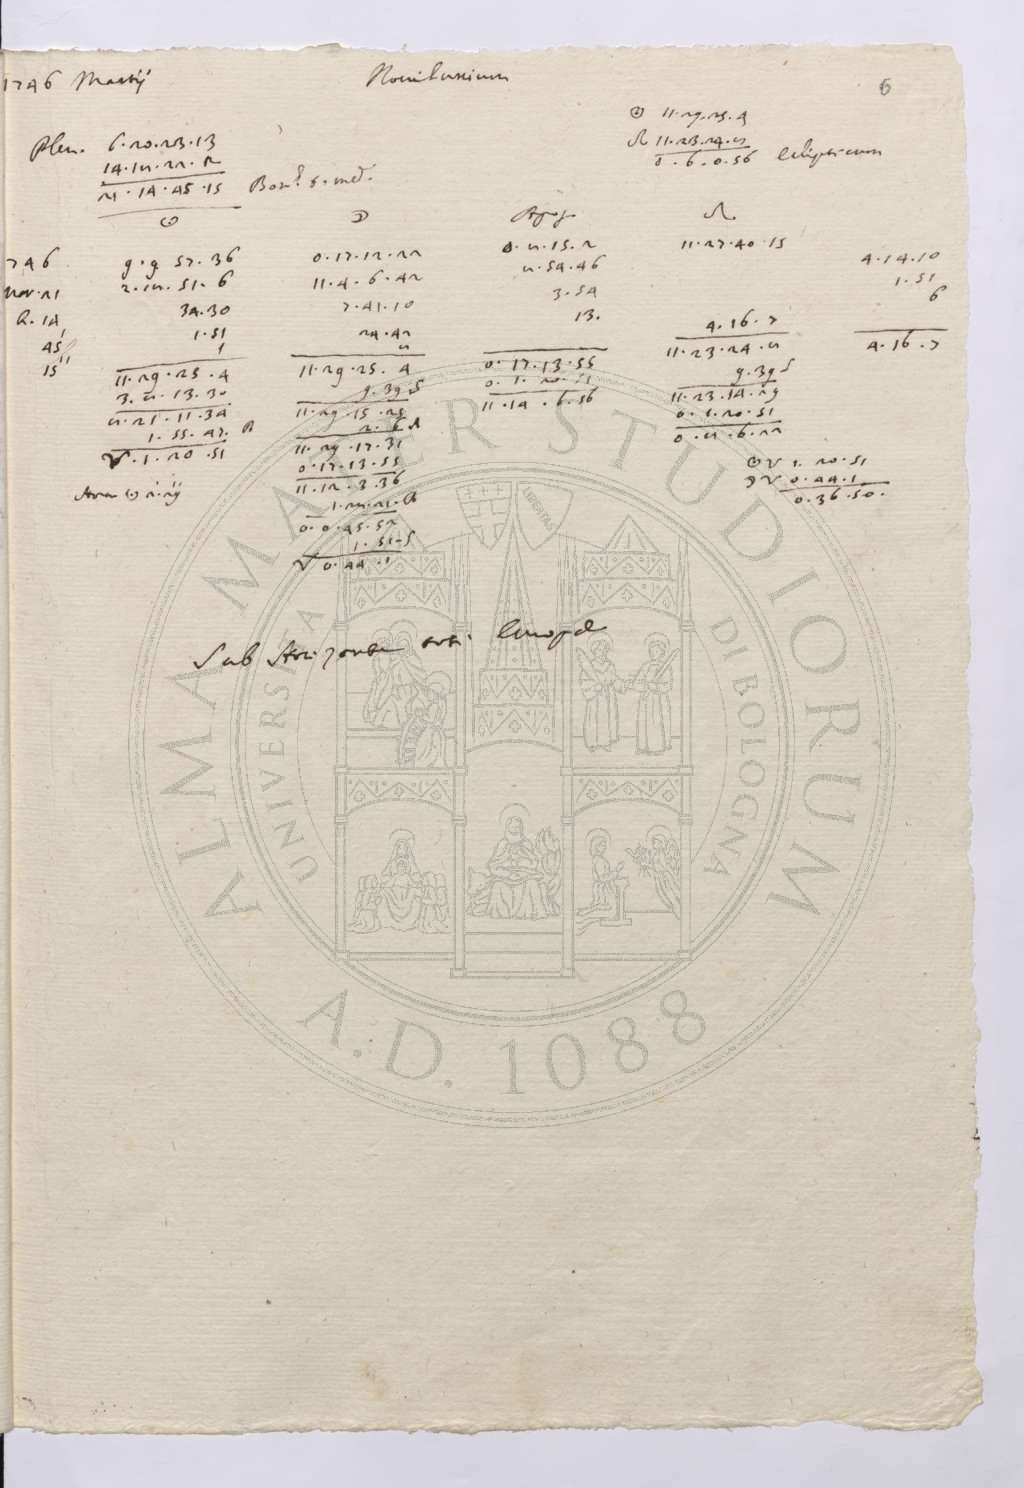 1746 Martij Novilunium 6
☉ 11.29.25.4
Plen. 6.20.23.13 ☊ 11.23.24.8
14.18.22.2 0.6.0.56 Eclipticum
21.14.45.15 t. med.
☉ ☽ Apog ☊
746 9.9.57.36 0.17.12.22 0.8.15.2 11.27.40.15 4.14.10
Mar. 21 2.18.51.6 11.4.6.42 8.54.46 1.51
h. 14 34.30 7.41.10 3.54 6
45' 1.51 24.42 13. 4.16.7 4.16.7
15'' 1 8
11.29.25.4 11.29.25.4 0.17.13.55 11.23.24.8
3.8.13.30 9.39 S 0.1.20.51 9.39 S
8.21.11.34 11.29.15.25 11.14.6.56 11.23.14.29
1.55.47. A 2.6 A 0.1.20.51
♈.1.20.51 11.29.17.31 0.8.6.22
0.17.13.55 ☉♈ 1.20.51
11.12.3.36 ☽♈ 0.44.1
1.28.21 A 0.36.50.
0.0.45.52
1.51 S
♈ 0.44.1
Sub Horizonte toti Europæ
ALMA MATER STUDIORUM
UNIVERSITÀ DI BOLOGNA
LIBERTAS
A.D. 1088